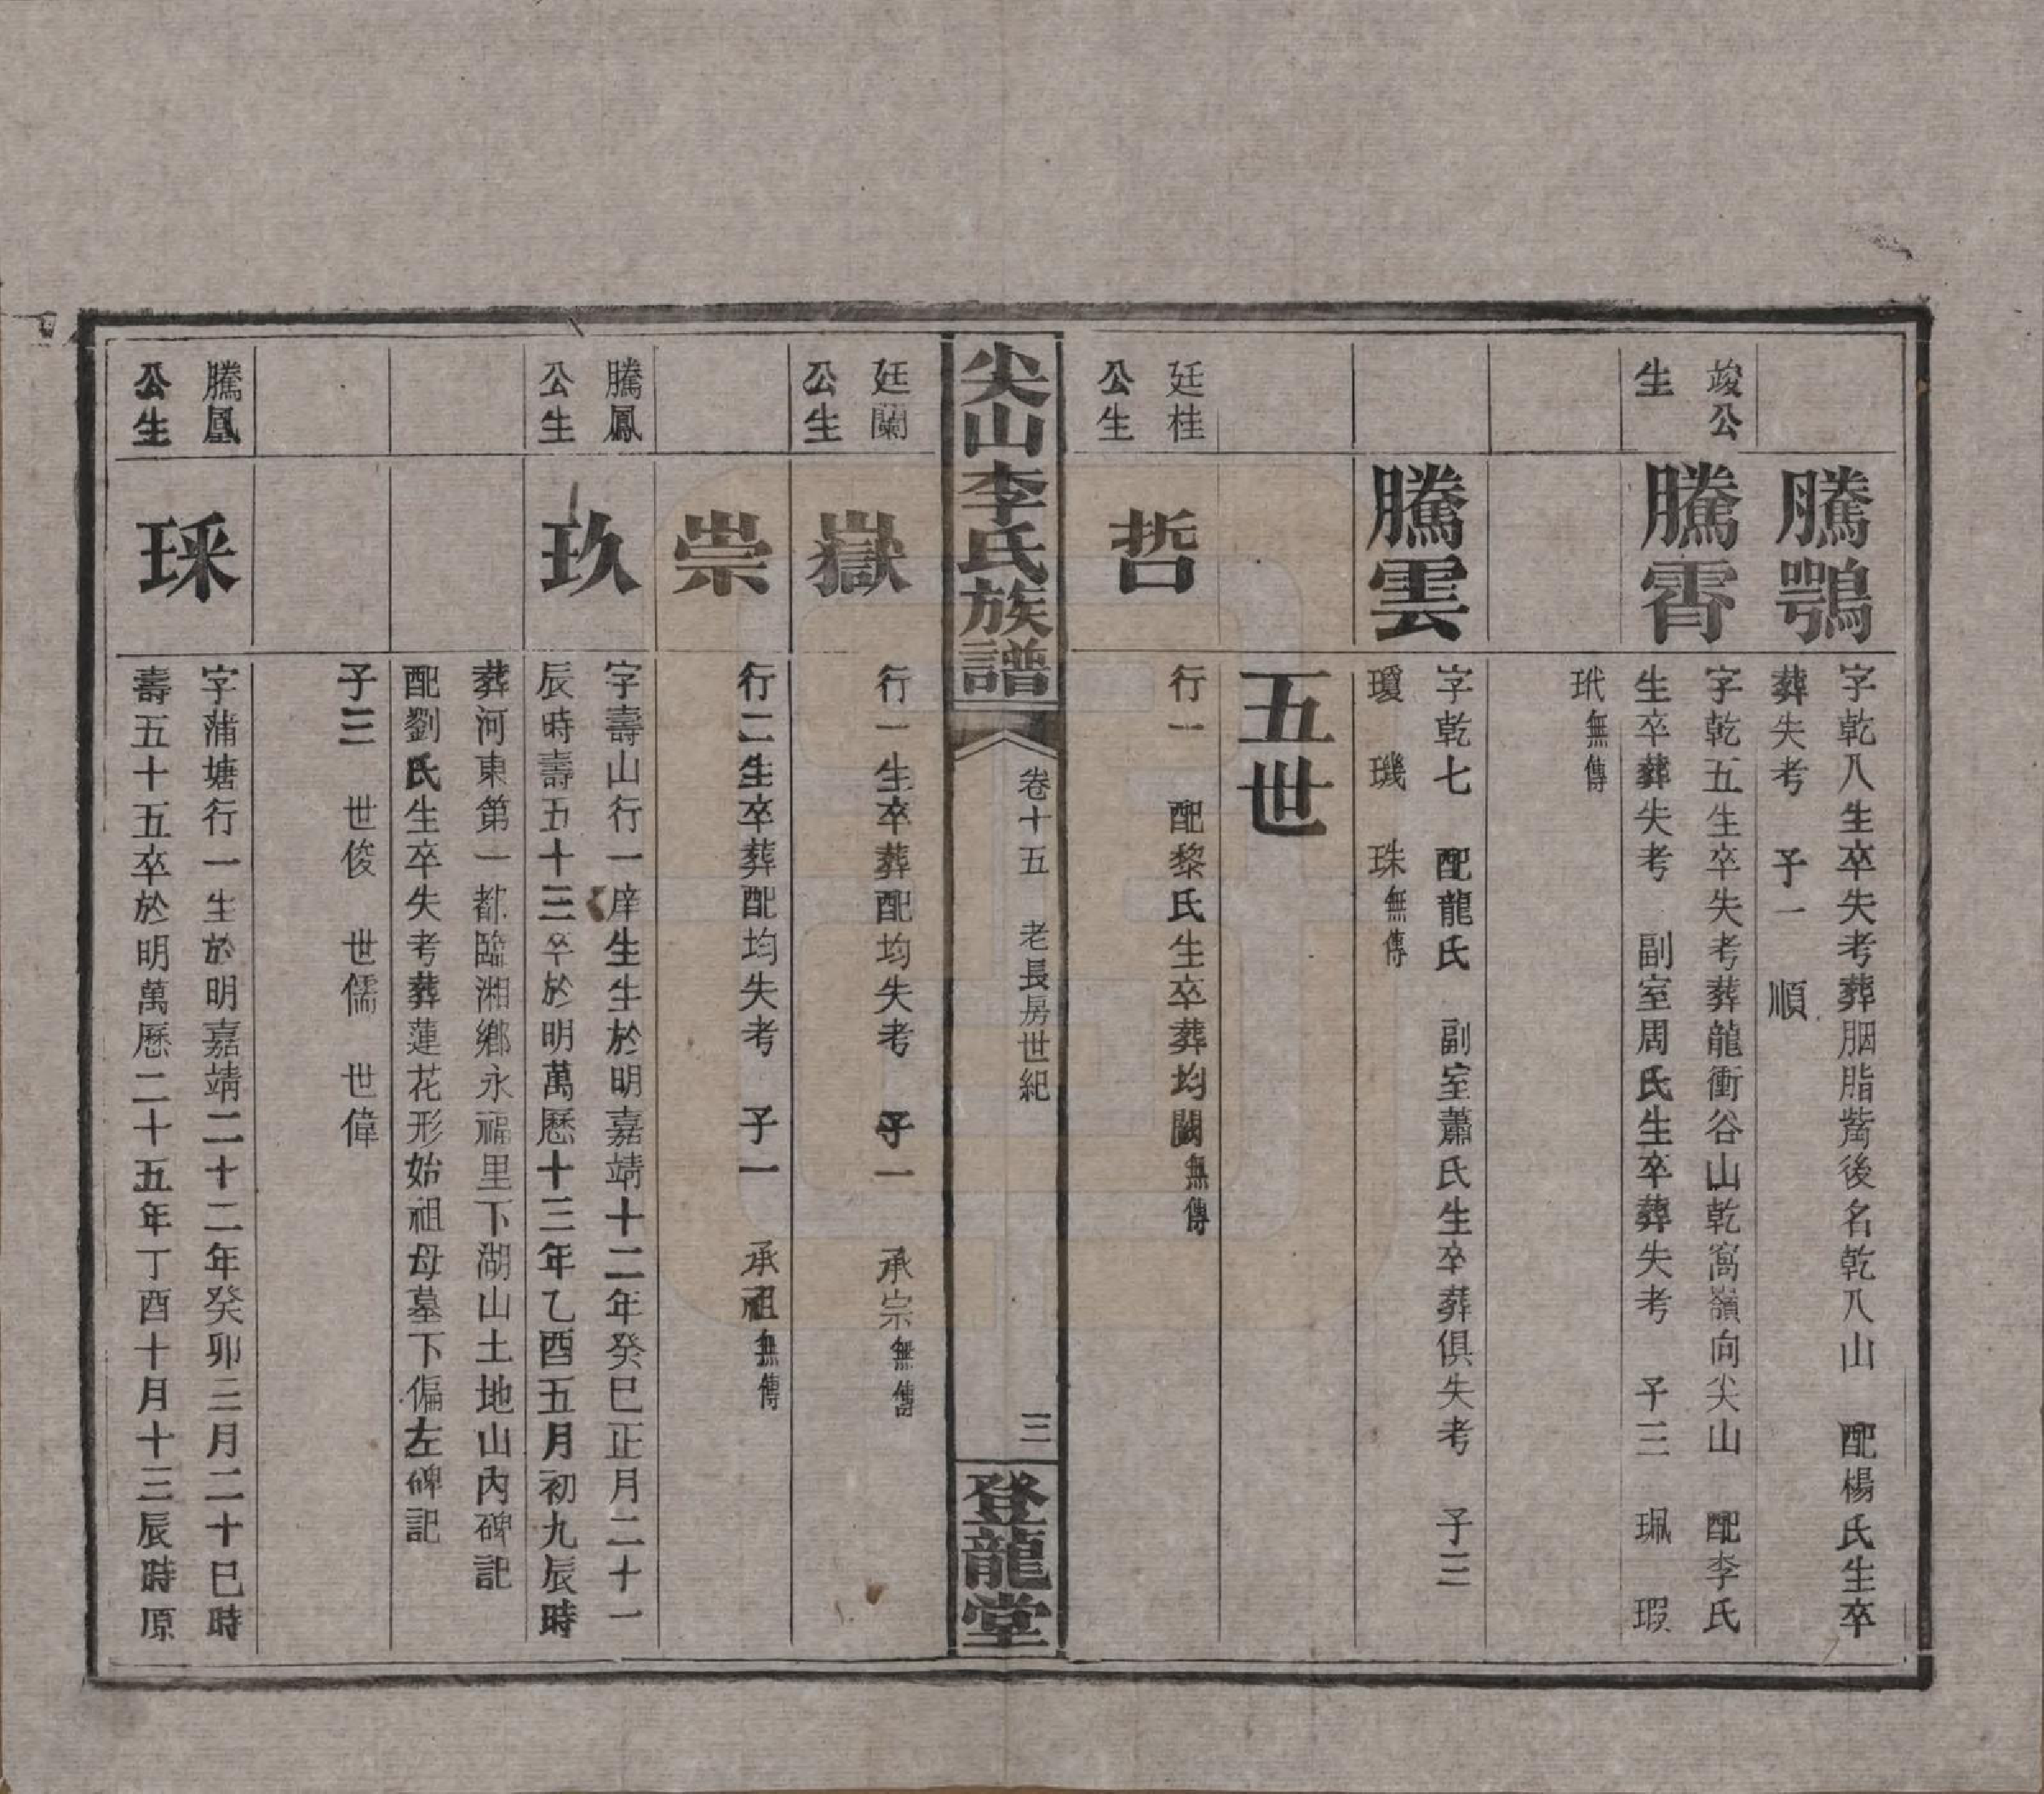 騰鶚
字乾八生卒失考葬胭脂觜後名乾八山　配楊氏生卒
葬失考　子一　順
竣公
生
騰霄
字乾五生卒失考葬龍衝谷山乾窩嶺向尖山　配李氏
生卒葬失考　副室周氏生卒葬失考　子三　珮　瑕
玳無傳
騰雲
字乾七　配龍氏　副室蕭氏生卒葬俱失考　子三
瓊　璣　珠無傳
五世
廷桂
公生
哲
行一　配黎氏生卒葬均闕無傳
尖山李氏族譜
卷十五　老長房世紀
三
登龍堂
廷蘭
公生
嶽
行一生卒葬配均失考　子一　承宗無傳
崇
行二生卒葬配均失考　子一　承祖無傳
騰鳳
公生
玖
字壽山行一庠生生於明嘉靖十二年癸巳正月二十一
辰時壽五十三卒於明萬歷十三年乙酉五月初九辰時
葬河東第一都臨湘鄉永福里下湖山土地山內碑記
配劉氏生卒失考葬蓮花形始祖母墓下偏左碑記
子三　世俊　世儒　世偉
騰鳳
公生
琛
字蒲塘行一生於明嘉靖二十二年癸卯三月二十巳時
壽五十五卒於明萬歷二十五年丁酉十月十三辰時原